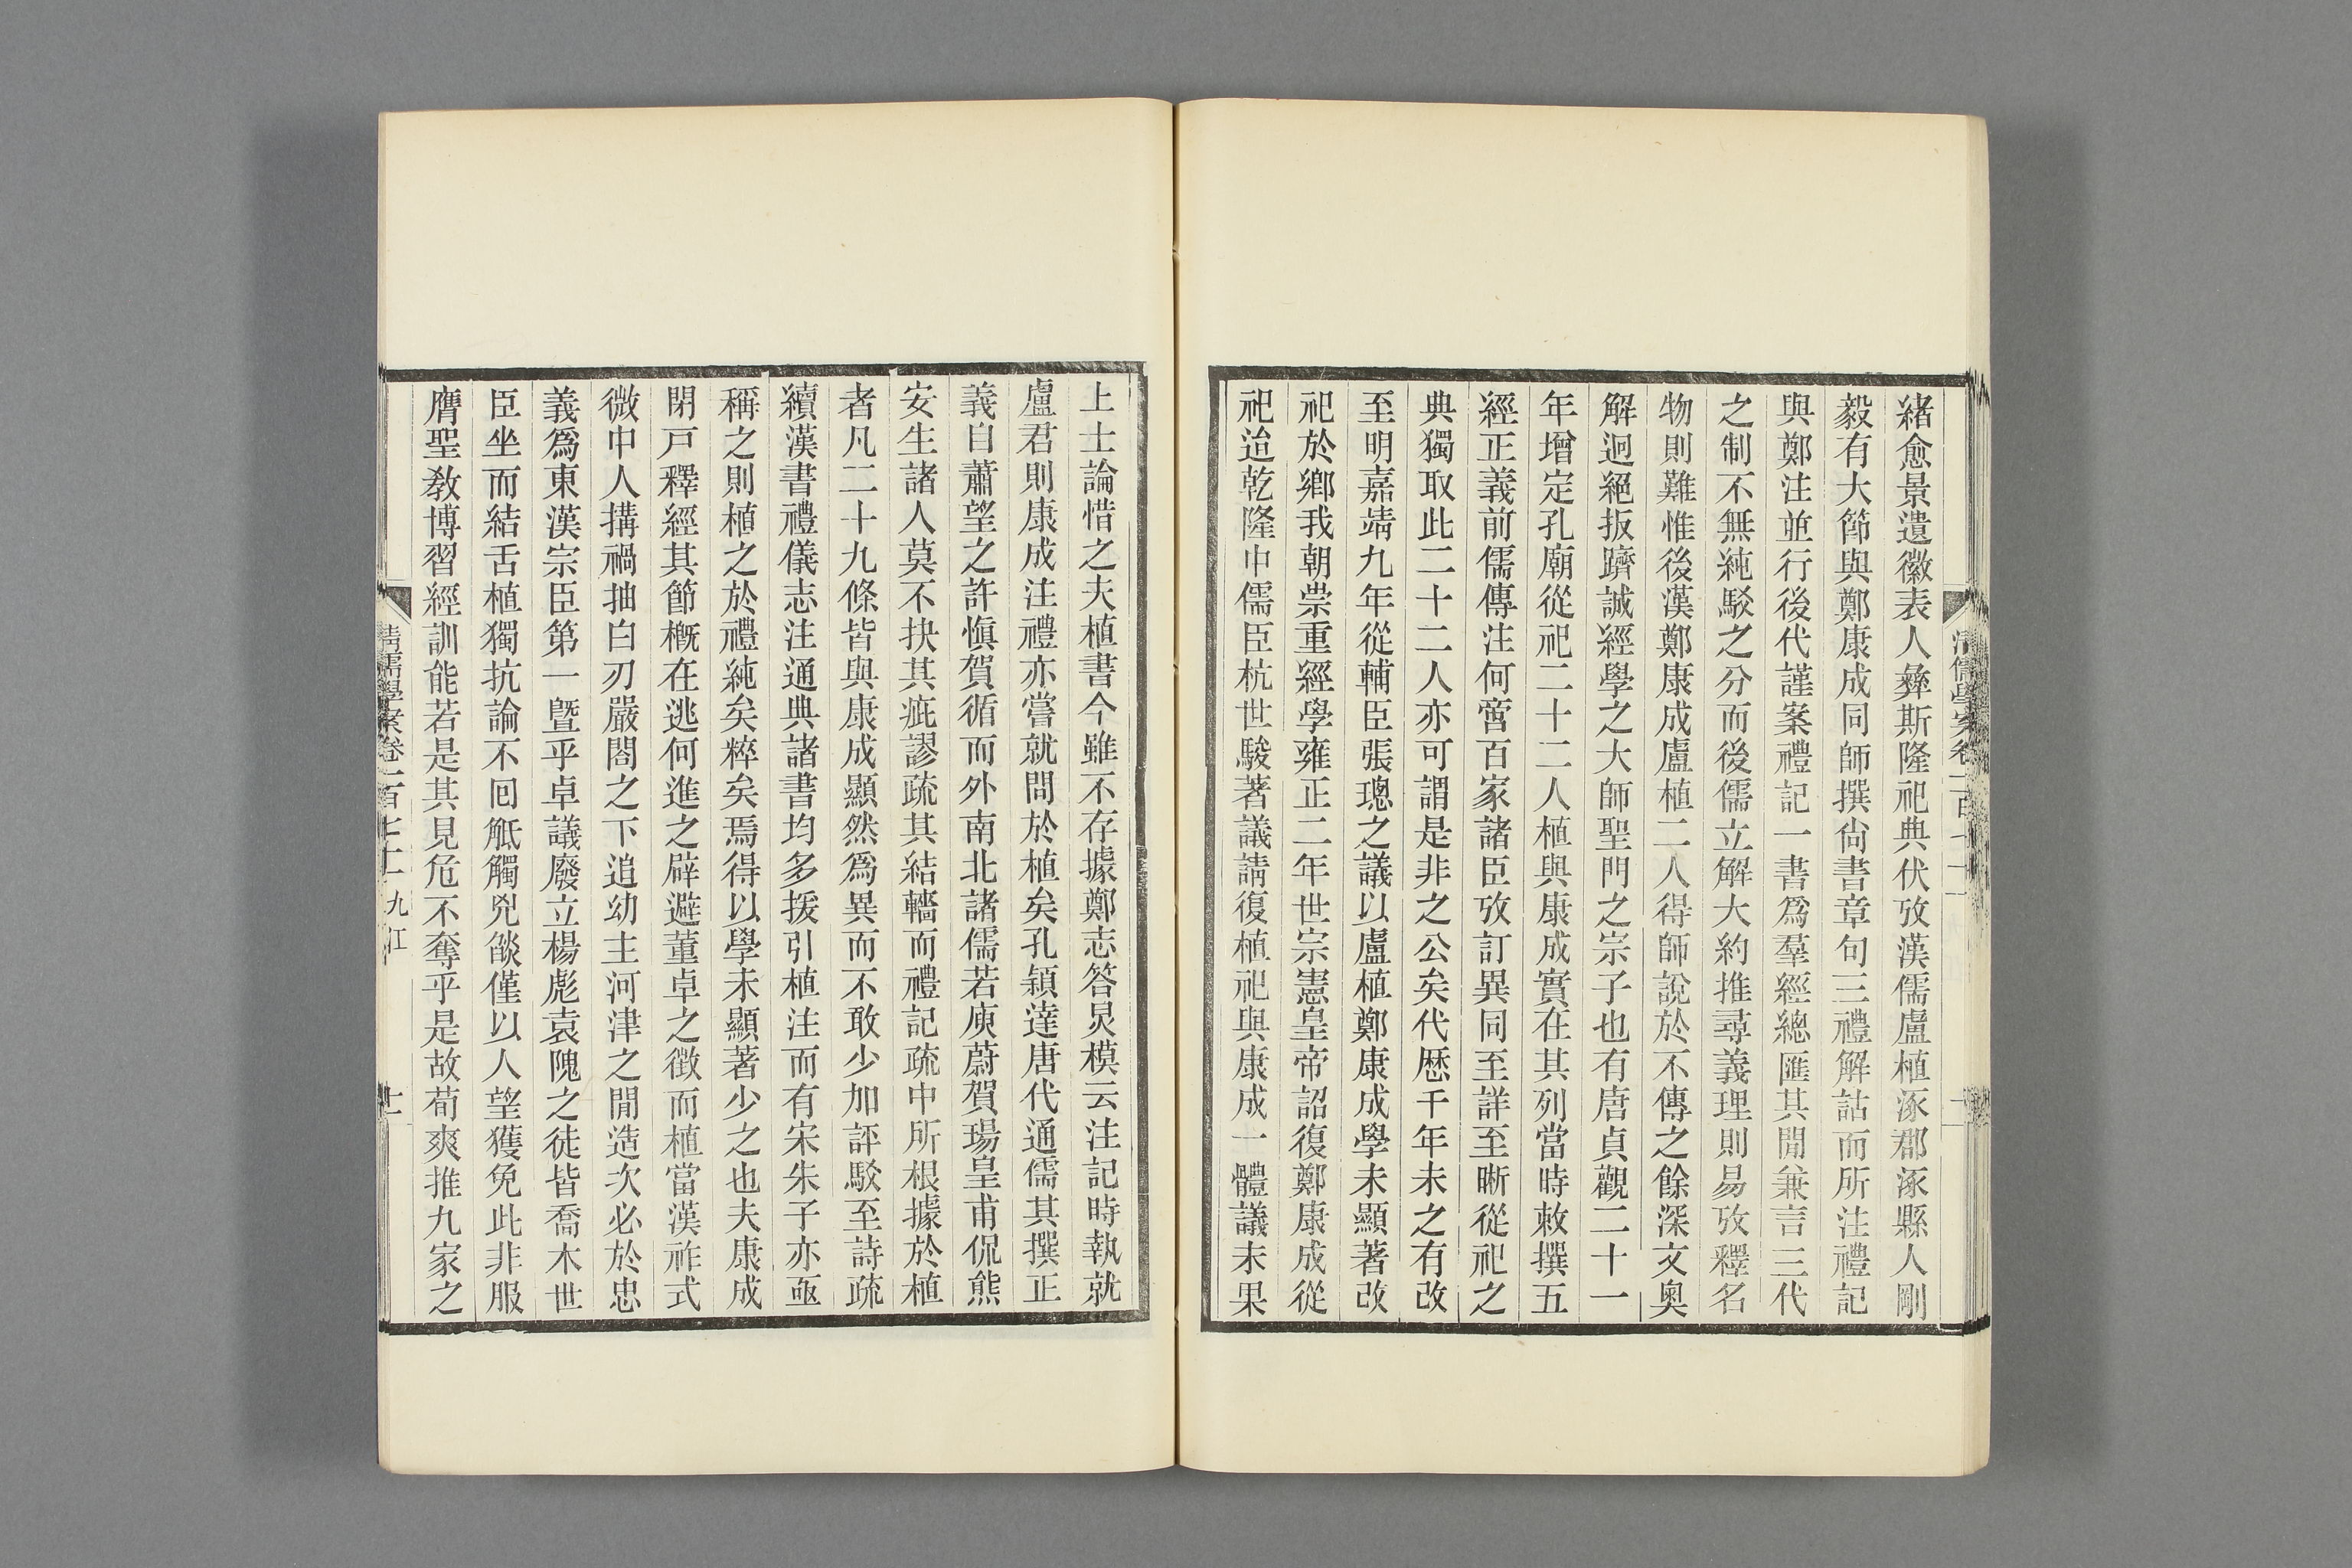 緒愈景遺徽表人彝斯隆祀典伏攷漢儒盧植涿郡涿縣人剛
毅有大節與鄭康成同師撰尙書章句三禮解詁而所注禮記
與鄭注並行後代謹案禮記一書爲羣經總匯其閒兼言三代
之制不無純駁之分而後儒立解大約推尋義理則易攷釋名
物則難惟後漢鄭康成盧植二人得師說於不傳之餘深文奧
解迥絕扳躋誠經學之大師聖門之宗子也有唐貞觀二十一
年增定孔廟從祀二十二人植與康成實在其列當時敕撰五
經正義前儒傳注何啻百家諸臣攷訂異同至詳至晰從祀之
典獨取此二十二人亦可謂是非之公矣代歷千年未之有改
至明嘉靖九年從輔臣張璁之議以盧植鄭康成學未顯著改
祀於鄉我朝崇重經學雍正二年世宗憲皇帝詔復鄭康成從
祀迨乾隆中儒臣杭世駿著議請復植祀與康成一體議未果
上士論惜之夫植書今雖不存據鄭志答炅模云注記時執就
盧君則康成注禮亦嘗就問於植矣孔穎達唐代通儒其撰正
義曰蕭望之許愼賀循而外南北諸儒若庾蔚賀瑒皇甫侃熊
安生諸人莫不抉其疵謬疏其結轖而禮記疏中所根據於植
者凡二十九條皆與康成顯然爲異而不敢少加評駁至詩疏
續漢書禮儀志注通典諸書均多援引植注而有宋朱子亦亟
稱之則植之於禮純矣粹矣焉得以學未顯著少之也夫康成
閉戸釋經其節槪在逃何進之辟避董卓之徵而植當漢祚式
微中人搆禍抽白刃嚴閤之下追幼主河津之閒造次必於忠
義爲東漢宗臣第一曁乎卓議廢立楊彪袁隗之徒皆喬木世
臣坐而結舌植獨抗論不回觝觸兇燄僅以人望獲免此非服
膺聖敎博習經訓能若是其見危不奪乎是故荀爽推九家之
清儒學案卷一百七十一　九江　十一